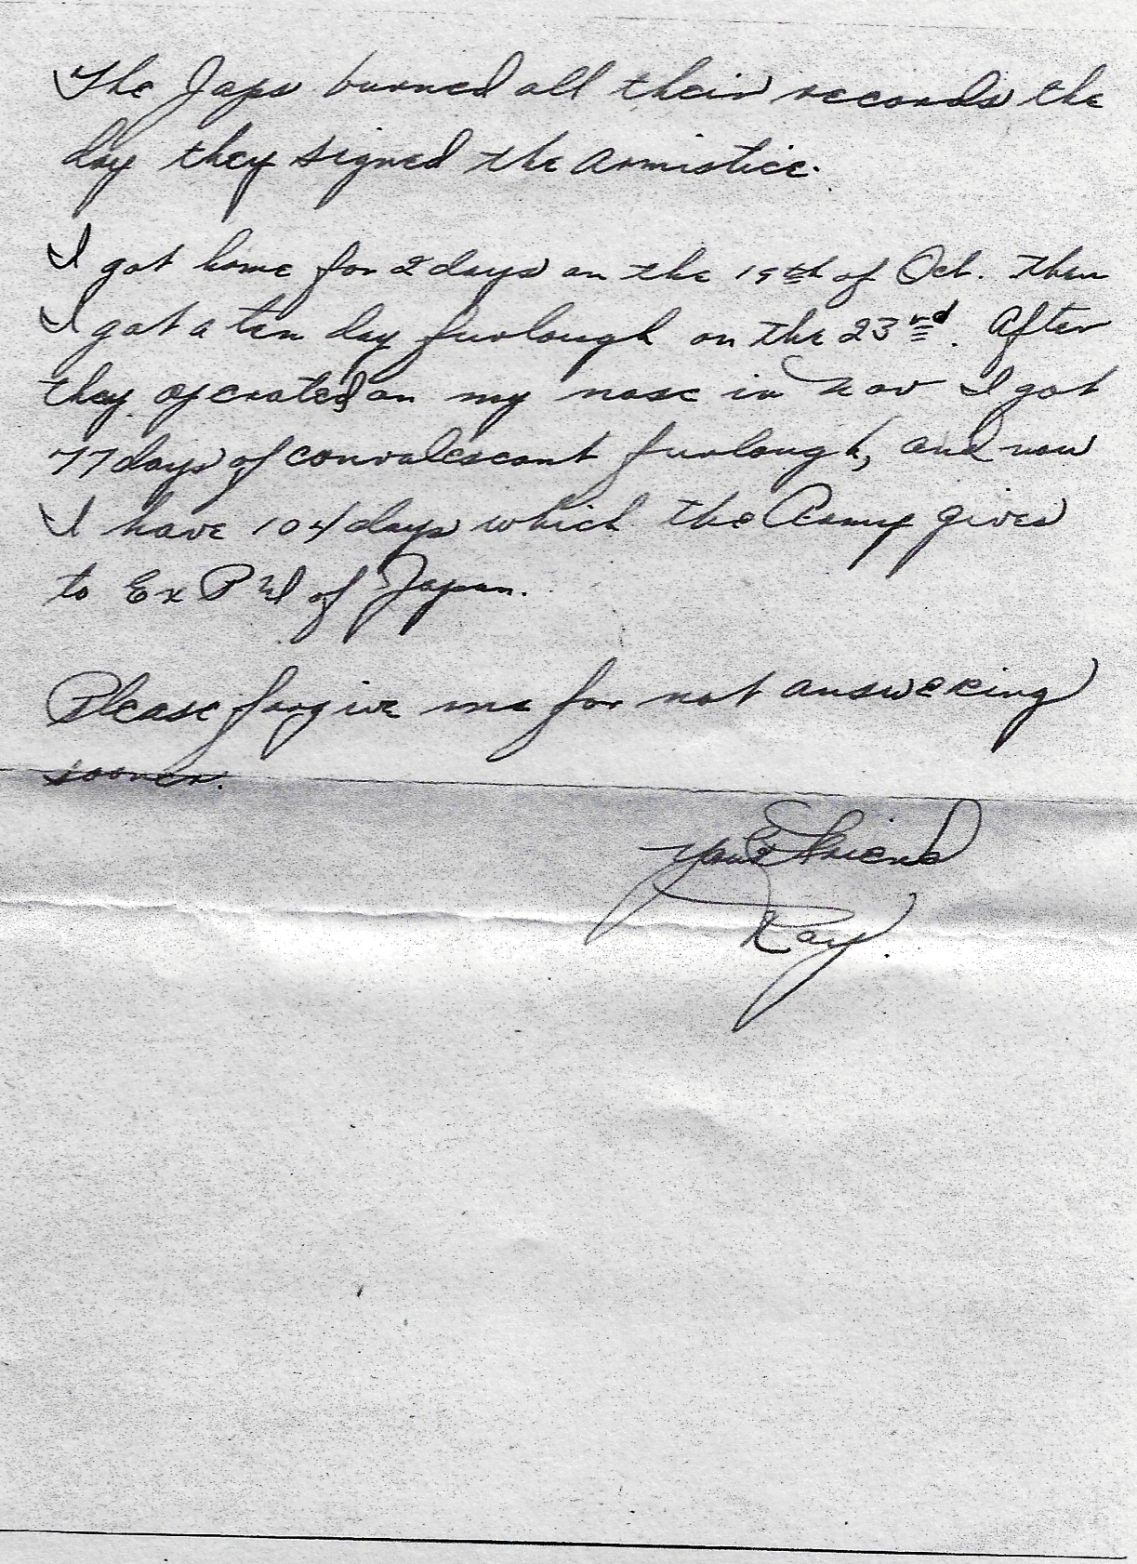 The Japs burned all their records the
day they signed the armistice.
I got home for 2 days on the 19th of Oct. then
I got a ten day furlough on the 23rd. After
they operated on my nose in Nov I got
77 days of convalescant furlough, and now
I have 104 days which the Army gives
to Ex P W of Japan.
Please forgive me for not answering
sooner.
Your Friend
Ray.